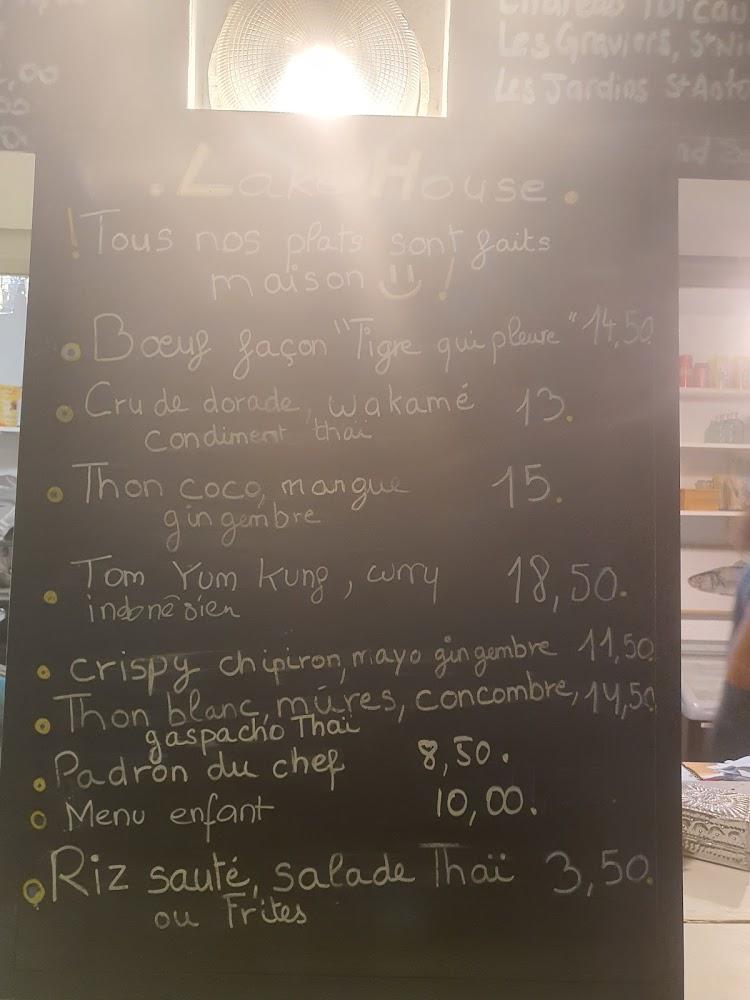 Les Graviers, St Ni
Les Jardins St Anto
. Lake House .
! Tous nos plats sont faits
maison !
Bœuf façon "Tigre qui pleure" 14,50
Cru de dorade, wakamé 13.
condiment thaï
Thon coco, mangue 15.
gingembre
Tom Yum Kung, curry 18,50.
indonésien
crispy chipiron, mayo gingembre 11,50
Thon blanc, mûres, concombre, 14,50
gaspacho Thaï
Padrón du chef 8,50.
Menu enfant 10,00.
Riz sauté, salade Thaï 3,50.
ou Frites